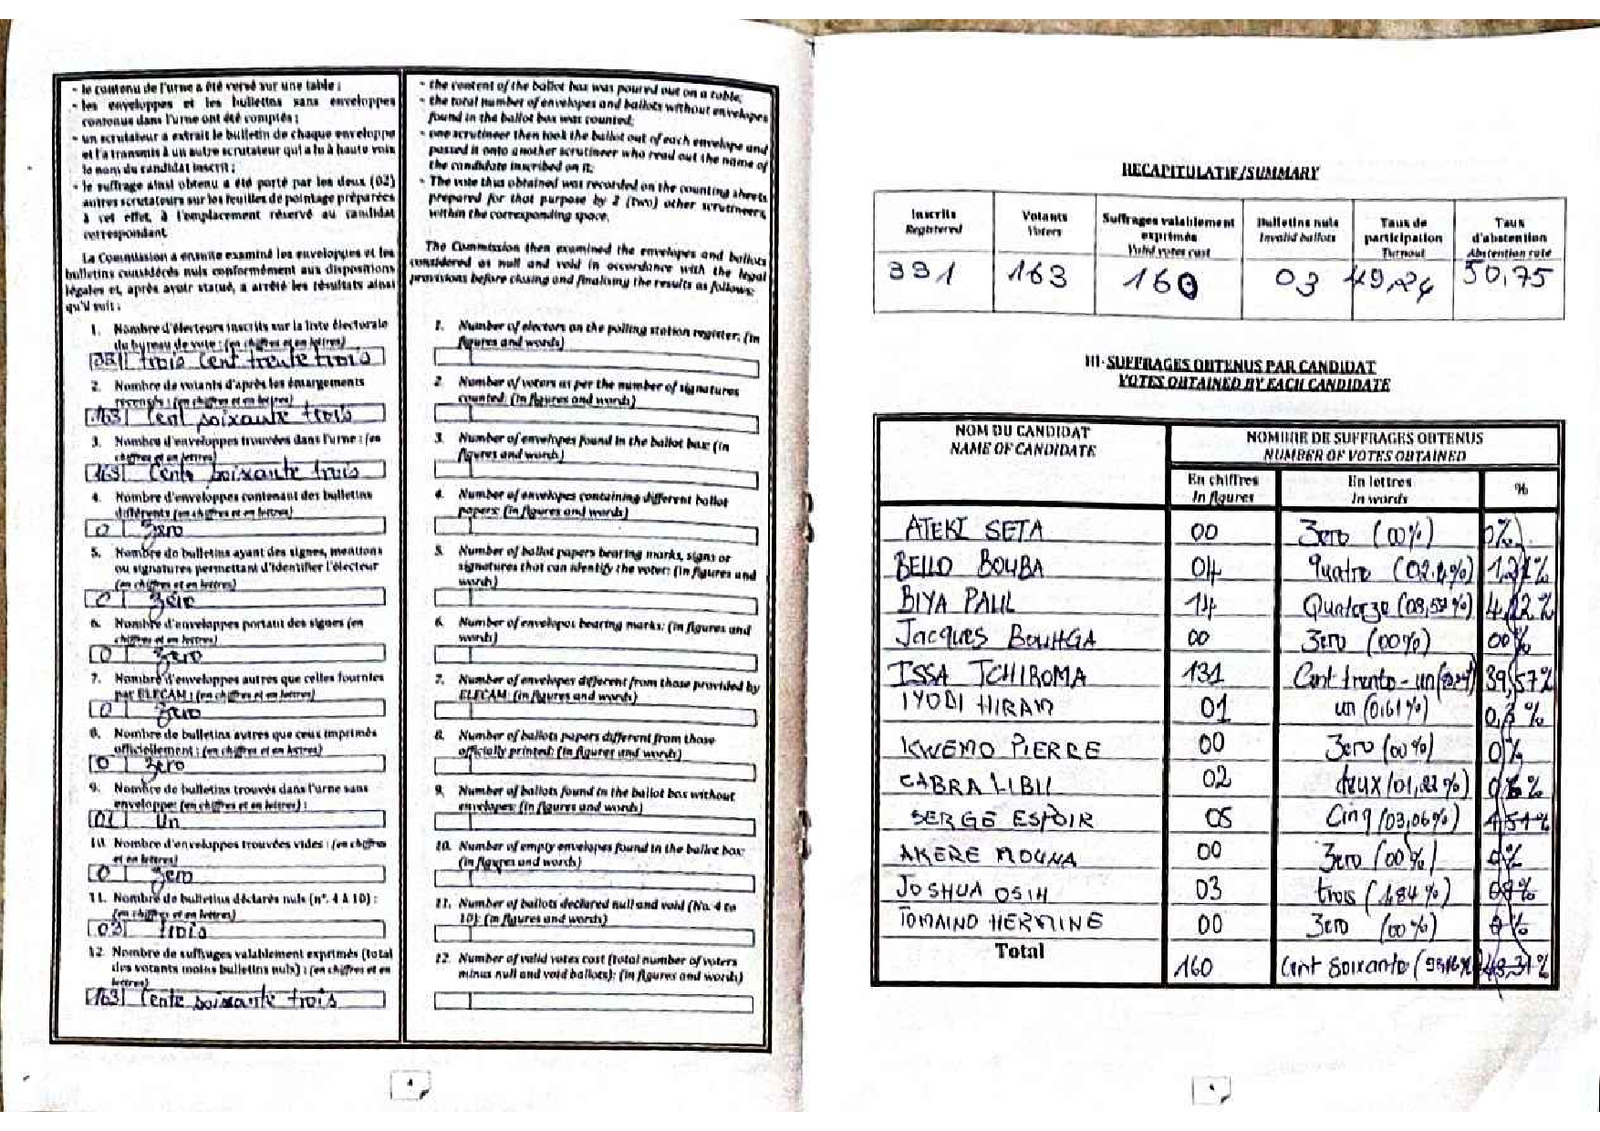 - le contenu de l'urne a été versé sur une table ;
- les enveloppes et les bulletins sans enveloppes
contenus dans l'urne ont été comptés ;
- un scrutateur a extrait le bulletin de chaque enveloppe
et l'a transmis à un autre scrutateur qui a lu à haute voix
le nom du candidat inscrit ;
- le suffrage ainsi obtenu a été porté par les deux (02)
autres scrutateurs sur les feuilles de pointage préparées
à cet effet, à l'emplacement réservé au candidat
correspondant.
La Commission a ensuite examiné les enveloppes et les
bulletins considérés nuls conformément aux dispositions
légales et, après avoir statué, a arrêté les résultats ainsi
qu'il suit :
1. Nombre d'électeurs inscrits sur la liste électorale
du bureau de vote : (en chiffres et en lettres)
331 trois cent trente trois
2. Nombre de votants d'après les émargements
recensés : (en chiffres et en lettres)
163 Cent soixante trois
3. Nombre d'enveloppes trouvées dans l'urne : (en
chiffres et en lettres)
163 Cente soixante trois
4. Nombre d'enveloppes contenant des bulletins
différents (en chiffres et en lettres)
0 Zero
5. Nombre de bulletins ayant des signes, mentions
ou signatures permettant d'identifier l'électeur
(en chiffres et en lettres)
0 Zero
6. Nombre d'enveloppes portant des signes (en
chiffres et en lettres)
0 Zero
7. Nombre d'enveloppes autres que celles fournies
par ELECAM : (en chiffres et en lettres)
0 Zero
8. Nombre de bulletins autres que ceux imprimés
officiellement : (en chiffres et en lettres)
0 Zero
9. Nombre de bulletins trouvés dans l'urne sans
enveloppe: (en chiffres et en lettres) :
01 Un
10. Nombre d'enveloppes trouvées vides : (en chiffres
et en lettres)
0 Zero
11. Nombre de bulletins déclarés nuls (n°. 4 à 10) :
(en chiffres et en lettres)
03 trois
12. Nombre de suffrages valablement exprimés (total
des votants moins bulletins nuls) : (en chiffres et en
lettres)
163 Cente soixante trois
- the content of the ballot box was poured out on a table;
- the total number of envelopes and ballots without envelopes
found in the ballot box was counted;
- one scrutineer then took the ballot out of each envelope and
passed it onto another scrutineer who read out the name of
the candidate inscribed on it;
- The vote thus obtained was recorded on the counting sheets
prepared for that purpose by 2 (two) other scrutineers,
within the corresponding space.
The Commission then examined the envelopes and ballots
considered as null and void in accordance with the legal
provisions before closing and finalising the results as follows:
1. Number of electors on the polling station register: (in
figures and words)
2. Number of voters as per the number of signatures
counted: (in figures and words)
3. Number of envelopes found in the ballot box: (in
figures and words)
4. Number of envelopes containing different ballot
papers: (in figures and words)
5. Number of ballot papers bearing marks, signs or
signatures that can identify the voter: (in figures and
words)
6. Number of envelopes bearing marks: (in figures and
words)
7. Number of envelopes different from those provided by
ELECAM: (in figures and words)
8. Number of ballots papers different from those
officially printed: (in figures and words)
9. Number of ballots found in the ballot box without
envelopes: (in figures and words)
10. Number of empty envelopes found in the ballot box:
(in figures and words)
11. Number of ballots declared null and void (No. 4 to
10): (in figures and words)
12. Number of valid votes cost (total number of voters
minus null and void ballots): (in figures and words)
4
RECAPITULATIF/SUMMARY
Inscrits Registered | Votants Voters | Suffrages valablement exprimés Valid votes cast | Bulletins nuls Invalid ballots | Taux de participation Turnout | Taux d'abstention Abstention rate
331 163 160 03 49,24 50,75
III- SUFFRAGES OBTENUS PAR CANDIDAT
VOTES OBTAINED BY EACH CANDIDATE
NOM DU CANDIDAT
NAME OF CANDIDATE
NOMBRE DE SUFFRAGES OBTENUS
NUMBER OF VOTES OBTAINED
En chiffres In figures | En lettres In words | %
ATEKI SETA 00 Zero (00%) 0%
BELLO BOUBA 04 quatre (02.4%)
BIYA PAUL 14 Quatorze (08,58%)
Jacques BOUHGA 00 Zero (00%) 00%
ISSA TCHIROMA 131 Cent trente-un 39,57%
IYODI HIRAM 01 un (0,61%) 0,3 %
KWEMO PIERRE 00 Zero (00%) 0%
CABRA LIBII 02 deux (01,22%)
SERGE ESPOIR 05 Cinq (03,06%)
AKERE MOUNA 00 Zero (00%) 0%
JOSHUA OSIH 03 trois (1,84%)
TOMAINO HERMINE 00 Zero (00%) 0%
Total 160 Cent soixante